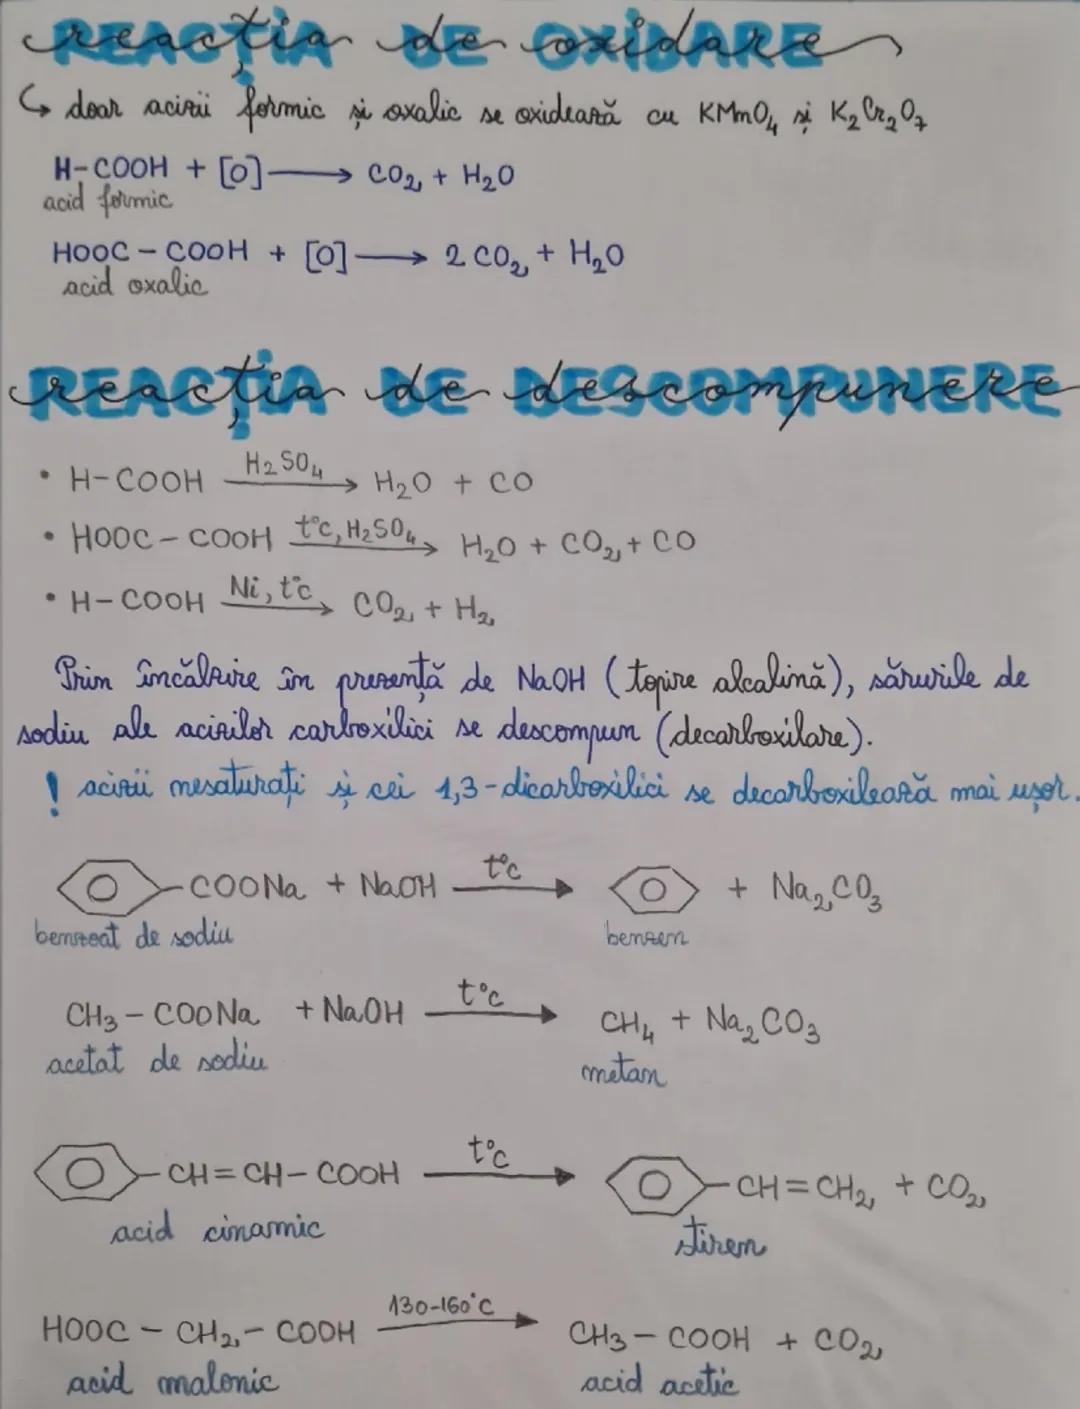 REACȚIA DE OXIDARE
↳ doar acizii formic și oxalic se oxidează cu KMnO₄ și K₂Cr₂O₇
H-COOH + [O] ⟶ CO₂ + H₂O
acid formic
HOOC - COOH + [O] ⟶ 2 CO₂ + H₂O
acid oxalic
REACȚIA DE DESCOMPUNERE
• H-COOH H₂SO₄⟶ H₂O + CO
• HOOC - COOH t°C, H₂SO₄⟶ H₂O + CO₂ + CO
• H-COOH Ni, t°C⟶ CO₂ + H₂
Prin încălzire în prezență de NaOH (topire alcalină), sărurile de
sodiu ale acizilor carboxilici se descompun (decarboxilare).
! acizii nesaturați și cei 1,3-dicarboxilici se decarboxilează mai ușor.
-COONa + NaOH t°C⟶ + Na₂CO₃
benzoat de sodiu benzen
CH₃ - COONa + NaOH t°C⟶ CH₄ + Na₂CO₃
acetat de sodiu metan
-CH=CH-COOH t°C⟶ -CH=CH₂ + CO₂
acid cinamic stiren
HOOC - CH₂ - COOH 130-160°C⟶ CH₃ - COOH + CO₂
acid malonic acid acetic